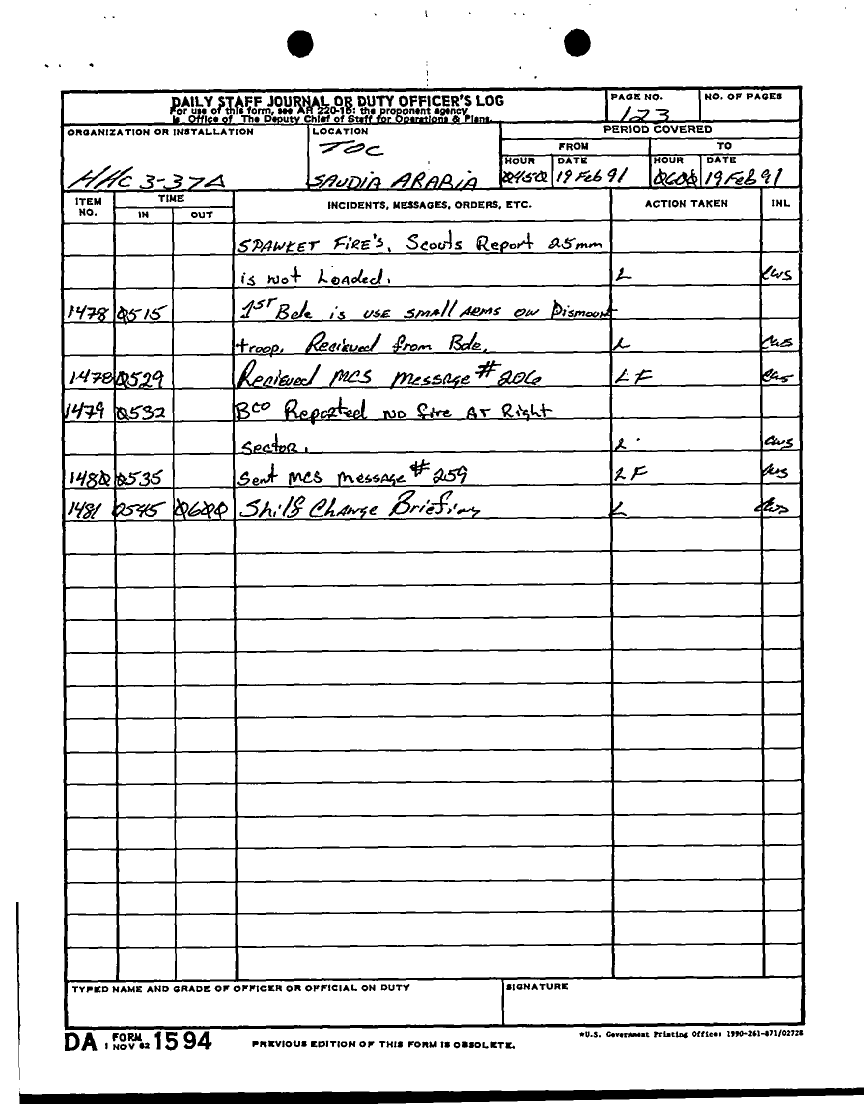 DAILY STAFF JOURNAL OR DUTY OFFICER'S LOG
For use of this form, see AR 220-15: the proponent agency
is Office of The Deputy Chief of Staff for Operations & Plans.
PAGE NO.
123
NO. OF PAGES
ORGANIZATION OR INSTALLATION
HHC 3-37A
LOCATION
TOC
SAUDIA ARABIA
PERIOD COVERED
FROM
TO
HOUR DATE HOUR DATE
0450 19 Feb 91 0600 19 Feb 91
ITEM NO. TIME INCIDENTS, MESSAGES, ORDERS, ETC. ACTION TAKEN INL
IN OUT
SPAWKET FIRE'S, Scouts Report 25mm
is not Loaded. L CWS
1478 0515 1ST Bde is USE SMALL ARMS ON Dismount
troop. Recieved from Bde. L CWS
1478 0529 Recieved MCS Message # 206 LF CWS
1479 0532 BCO Reported NO fire AT Right
Sector. L CWS
1480 0535 Sent MCS Message # 259 LF CWS
1481 0545 0600 Shift Change Briefing L CWS
TYPED NAME AND GRADE OF OFFICER OR OFFICIAL ON DUTY
SIGNATURE
DA FORM 1 NOV 62 1594
PREVIOUS EDITION OF THIS FORM IS OBSOLETE.
*U.S. Government Printing Office: 1990-261-871/02728